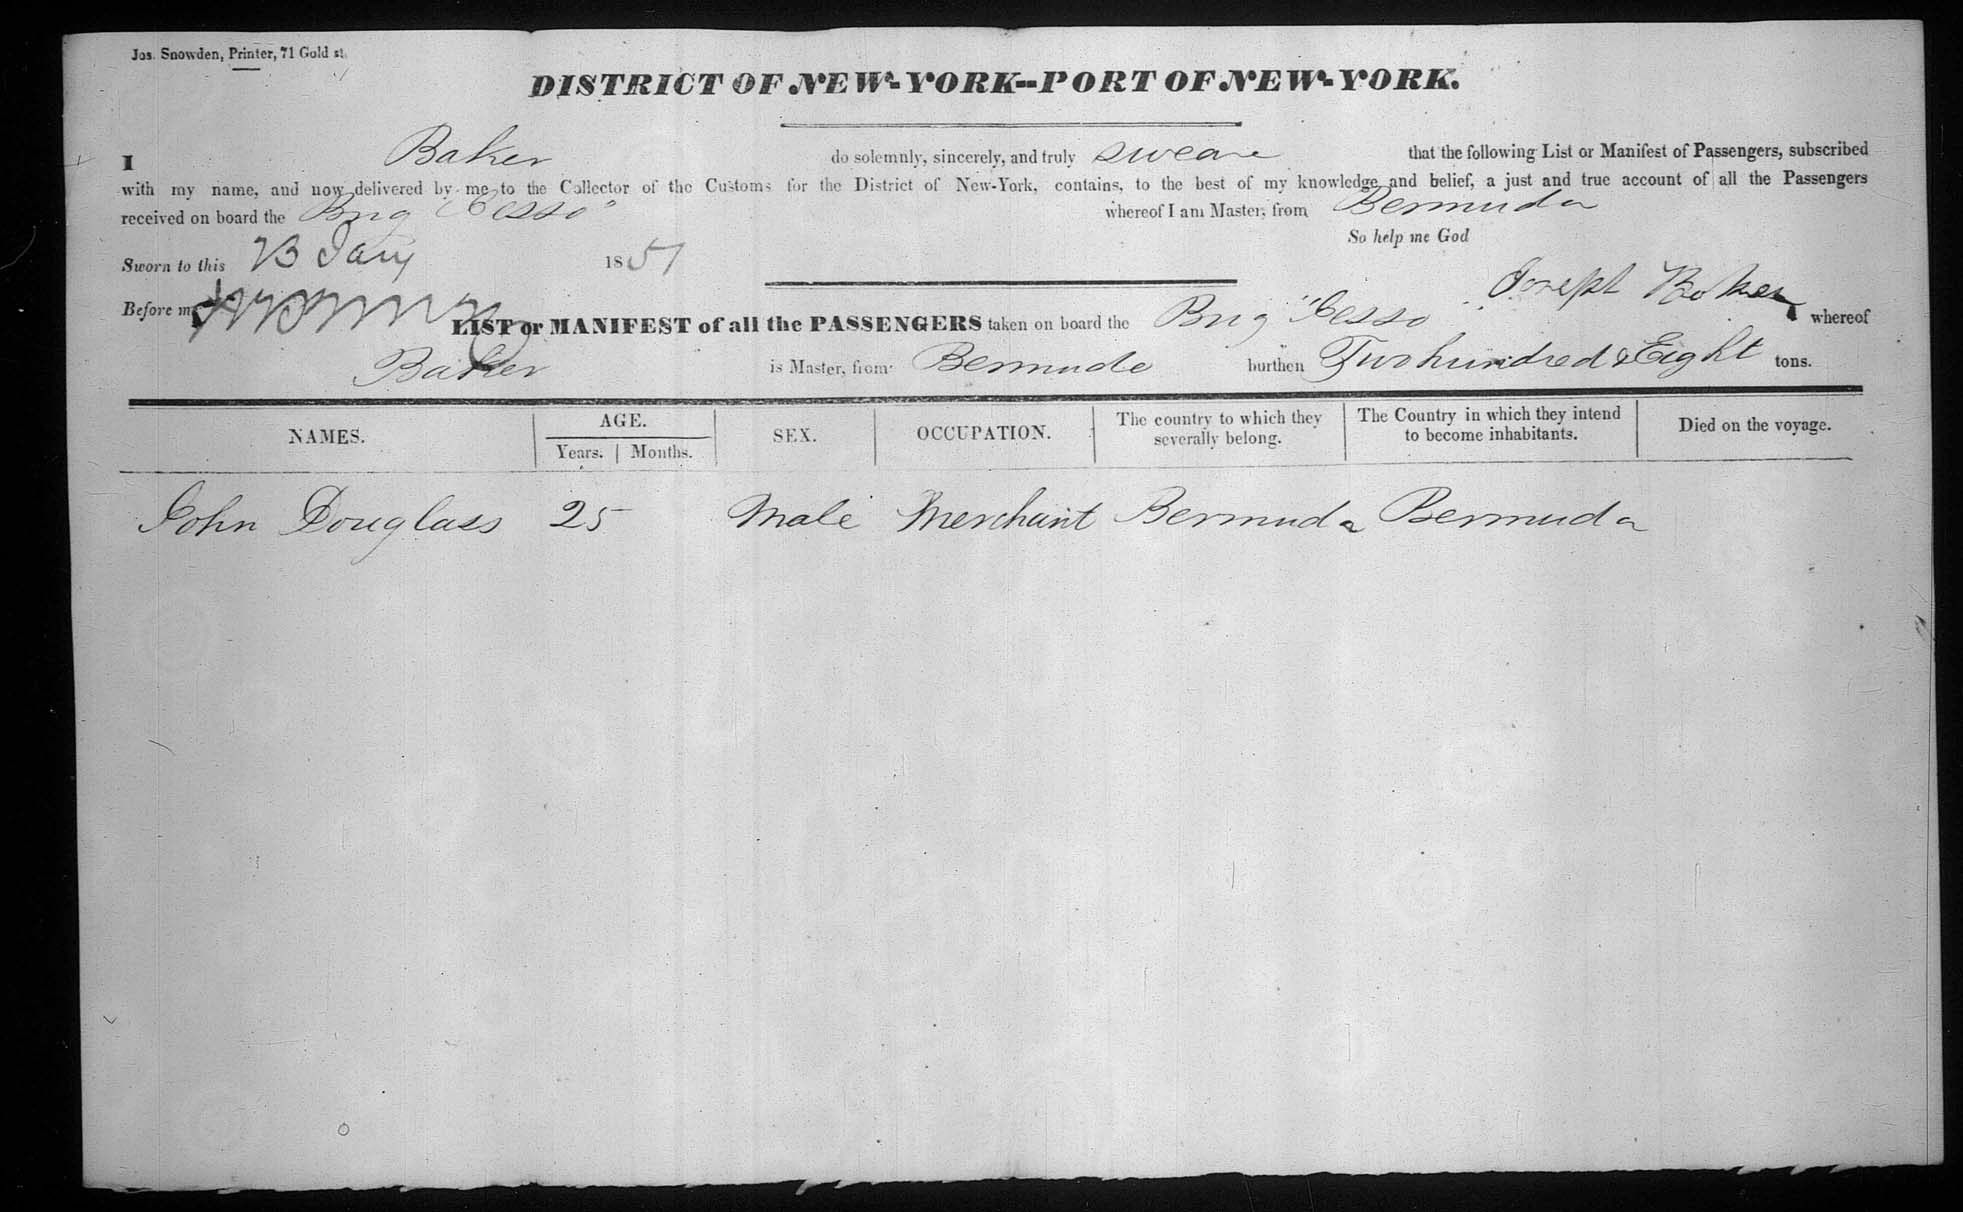 Jos. Snowden, Printer, 71 Gold st.
DISTRICT OF NEW-YORK--PORT OF NEW-YORK.
I Baker do solemnly, sincerely, and truly swear that the following List or Manifest of Passengers, subscribed
with my name, and now delivered by me to the Collector of the Customs for the District of New-York, contains, to the best of my knowledge and belief, a just and true account of all the Passengers
received on board the Brig whereof I am Master, from Bermuda
So help me God
Sworn to this Jany 1851
Joseph Baker
Before me
LIST or MANIFEST of all the PASSENGERS taken on board the Brig whereof
Baker is Master, from Bermuda burthen Two hundred & Eight tons.
NAMES. AGE. SEX. OCCUPATION. The country to which they severally belong. The Country in which they intend to become inhabitants. Died on the voyage.
Years. Months.
John Douglass 25 Male Merchant Bermuda Bermuda